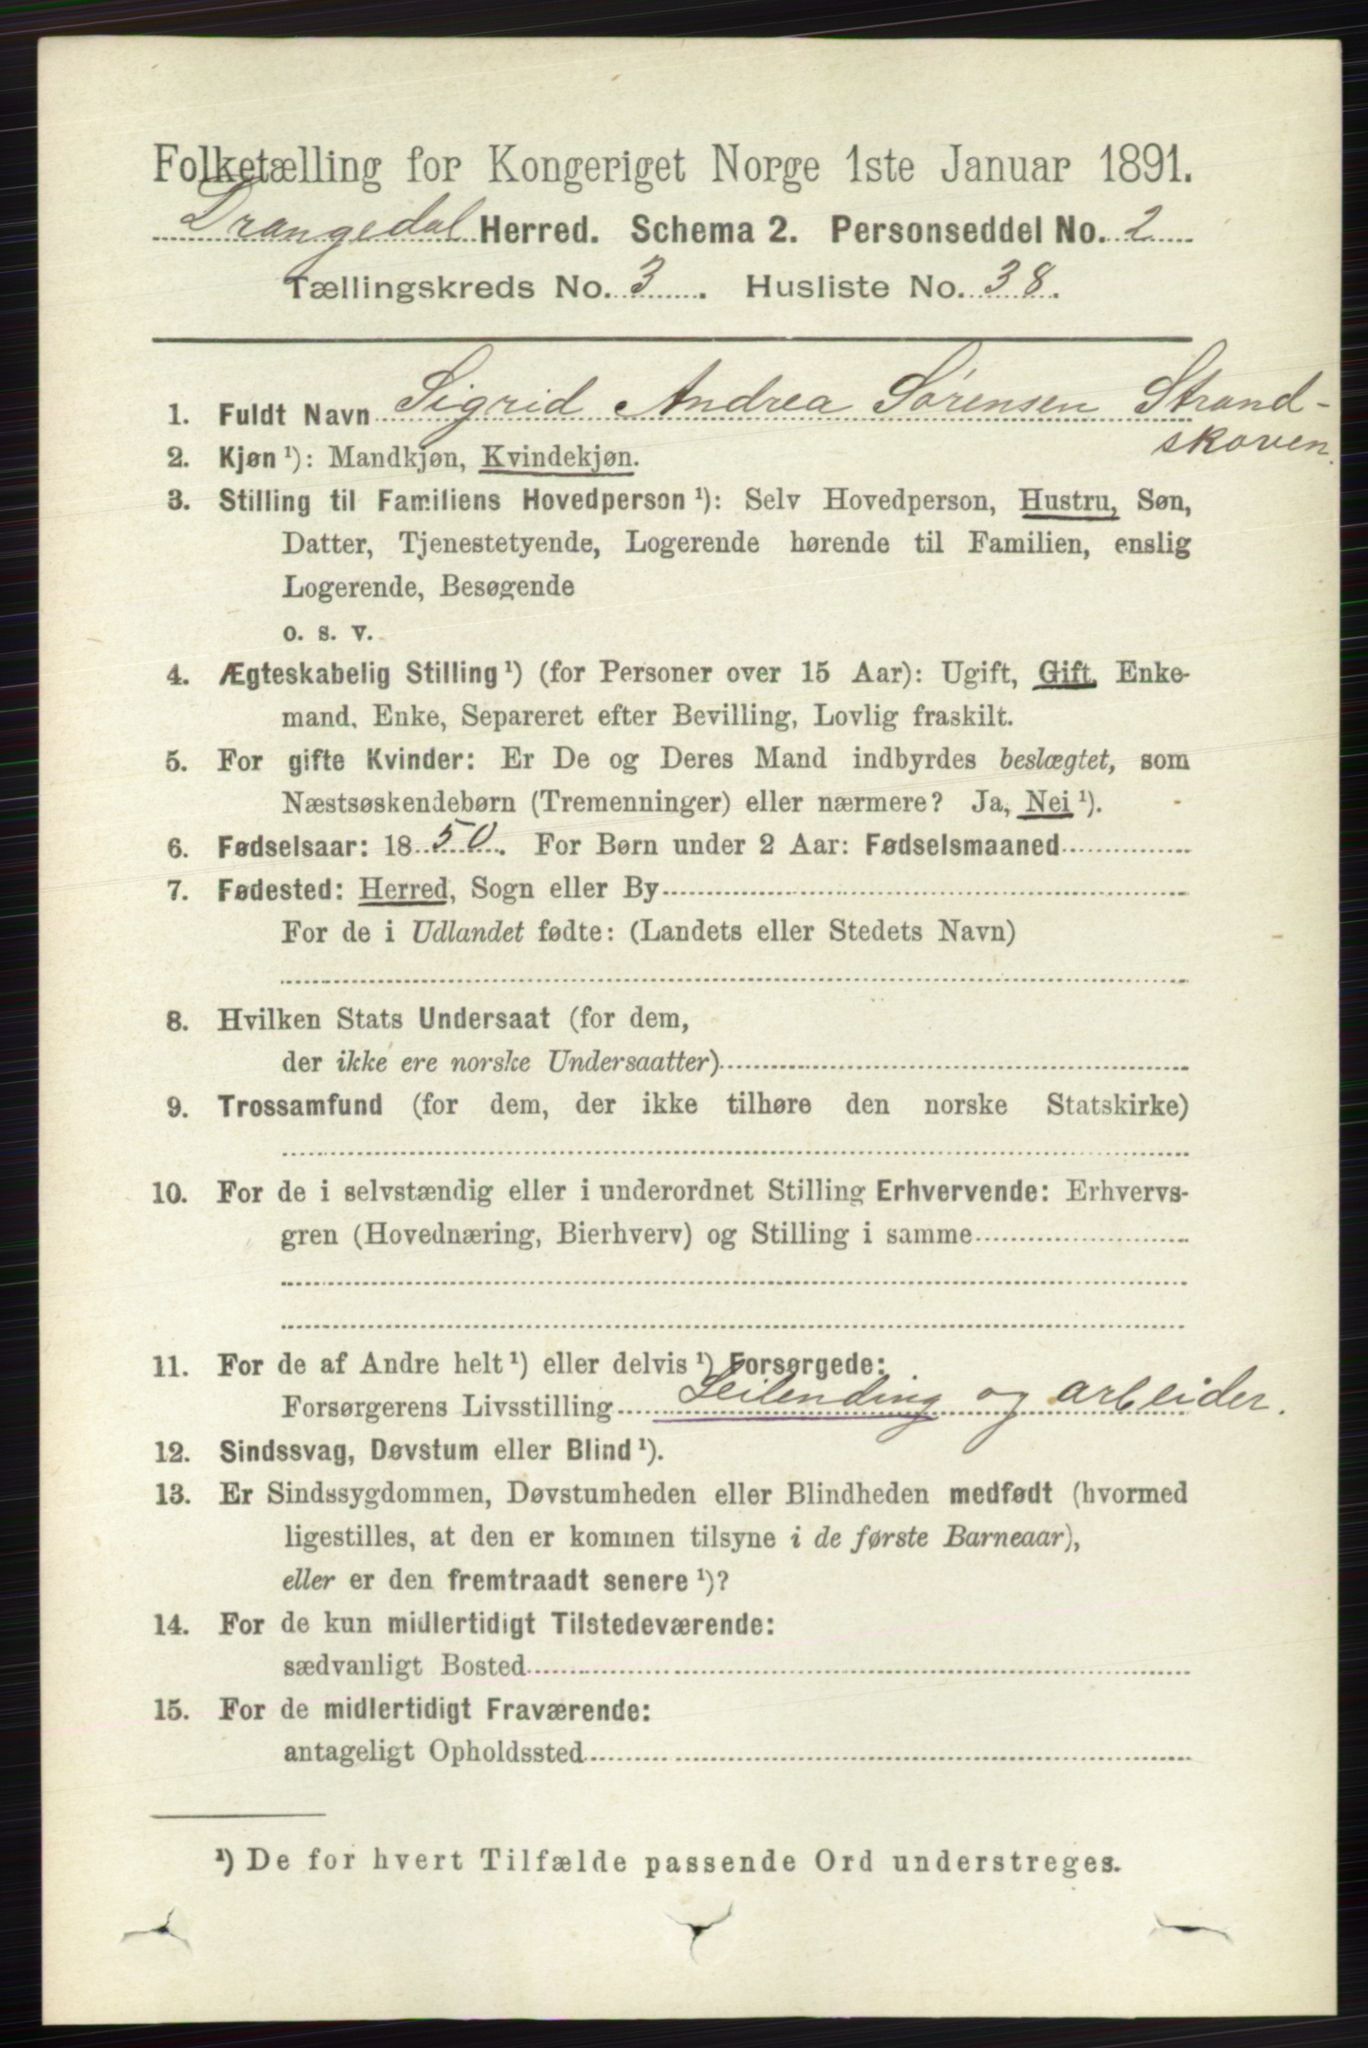 Folketælling for Kongeriget Norge 1ste Januar 1891.
Drangedal Herred. Schema 2. Personseddel No. 2
Tællingskreds No. 3. Husliste No. 38.
1. Fuldt Navn Sigrid Andrea Sørensen Strand-
skoven.
2. Kjøn ¹): Mandkjøn, Kvindekjøn.
3. Stilling til Familiens Hovedperson ¹): Selv Hovedperson, Hustru, Søn,
Datter, Tjenestetyende, Logerende hørende til Familien, enslig
Logerende, Besøgende
o. s. v.
4. Ægteskabelig Stilling ¹) (for Personer over 15 Aar): Ugift, Gift, Enke-
mand, Enke, Separeret efter Bevilling, Lovlig fraskilt.
5. For gifte Kvinder: Er De og Deres Mand indbyrdes beslægtet, som
Næstsøskendebørn (Tremenninger) eller nærmere? Ja, Nei ¹).
6. Fødselsaar: 1850. For Børn under 2 Aar: Fødselsmaaned
7. Fødested: Herred, Sogn eller By
For de i Udlandet fødte: (Landets eller Stedets Navn)
8. Hvilken Stats Undersaat (for dem,
der ikke ere norske Undersaatter)
9. Trossamfund (for dem, der ikke tilhøre den norske Statskirke)
10. For de i selvstændig eller i underordnet Stilling Erhvervende: Erhvervs-
gren (Hovednæring, Bierhverv) og Stilling i samme
11. For de af Andre helt ¹) eller delvis ¹) Forsørgede:
Forsørgerens Livsstilling Leilending og arbeider.
12. Sindssvag, Døvstum eller Blind ¹).
13. Er Sindssygdommen, Døvstumheden eller Blindheden medfødt (hvormed
ligestilles, at den er kommen tilsyne i de første Barneaar),
eller er den fremtraadt senere ¹)?
14. For de kun midlertidigt Tilstedeværende:
sædvanligt Bosted
15. For de midlertidigt Fraværende:
antageligt Opholdssted
¹) De for hvert Tilfælde passende Ord understreges.